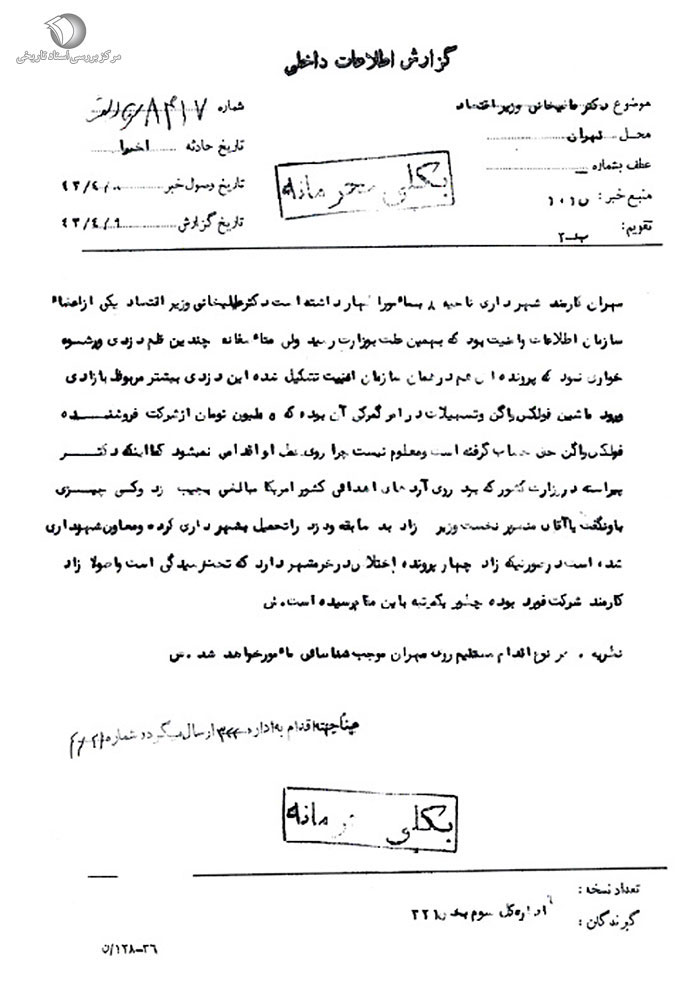 مرکز بررسی اسناد تاریخی
گزارش اطلاعات داخلی
موضوع دکتر عالیخانی وزیر اقتصاد
شماره ۸۴۱۷
محل تهران
تاریخ حادثه اخیرا
عطف بشماره
تاریخ وصول خبر ۴۳/۴/۸
بکلی محرمانه
منبع خبر: ۱۰۱۵
تاریخ گزارش ۴۳/۴/۹
تقویم: ب-۲
مهران کارمند شهرداری ناحیه ۸ بمأمور اظهار داشته است دکتر عالیخانی وزیر اقتصاد یکی از اعضاء
سازمان اطلاعات و امنیت بود که بهمین علت بوزارت رسید ولی متأسفانه چندین قلم دزدی و رشوه
خواری نمود که پرونده ای هم در همان سازمان امنیت تشکیل شده این دزدی بیشتر مربوط بآزادی
ورود ماشین فولکس واگن و تسهیلات در امر گمرکی آن بوده که ۵ ملیون تومان از شرکت فروشنده
فولکس واگن حق حساب گرفته است و معلوم نیست چرا روی عمل او اقدامی نمیشود کما اینکه دکتر
پیراسته در وزارت کشور که بود روی آردهای اهدائی کشور امریکا مبالغی بجیب زد و کسی چیزی
باو نگفت یا آقای منصور نخست وزیر زاد بد سابقه و دزد را تحمیل بشهرداری کرده و معاون شهرداری
شده است در صورتیکه زاد چهار پرونده اختلاس در خرمشهر دارد که تحت رسیدگی است و اصولا زاد
کارمند شرکت فورد بوده چطور یکمرتبه باین مقام رسیده است. ش
نظریه . هر نوع اقدام مستقیم روی مهران موجب شناسائی مأمور خواهد شد. ش
عیناً جهة اقدام به اداره ۳۲۲ ارسال میگردد شماره
بکلی محرمانه
تعداد نسخه:
گیرندگان: اداره کل سوم بخش ۳۲۱
۳۶-۱۲۸/ن